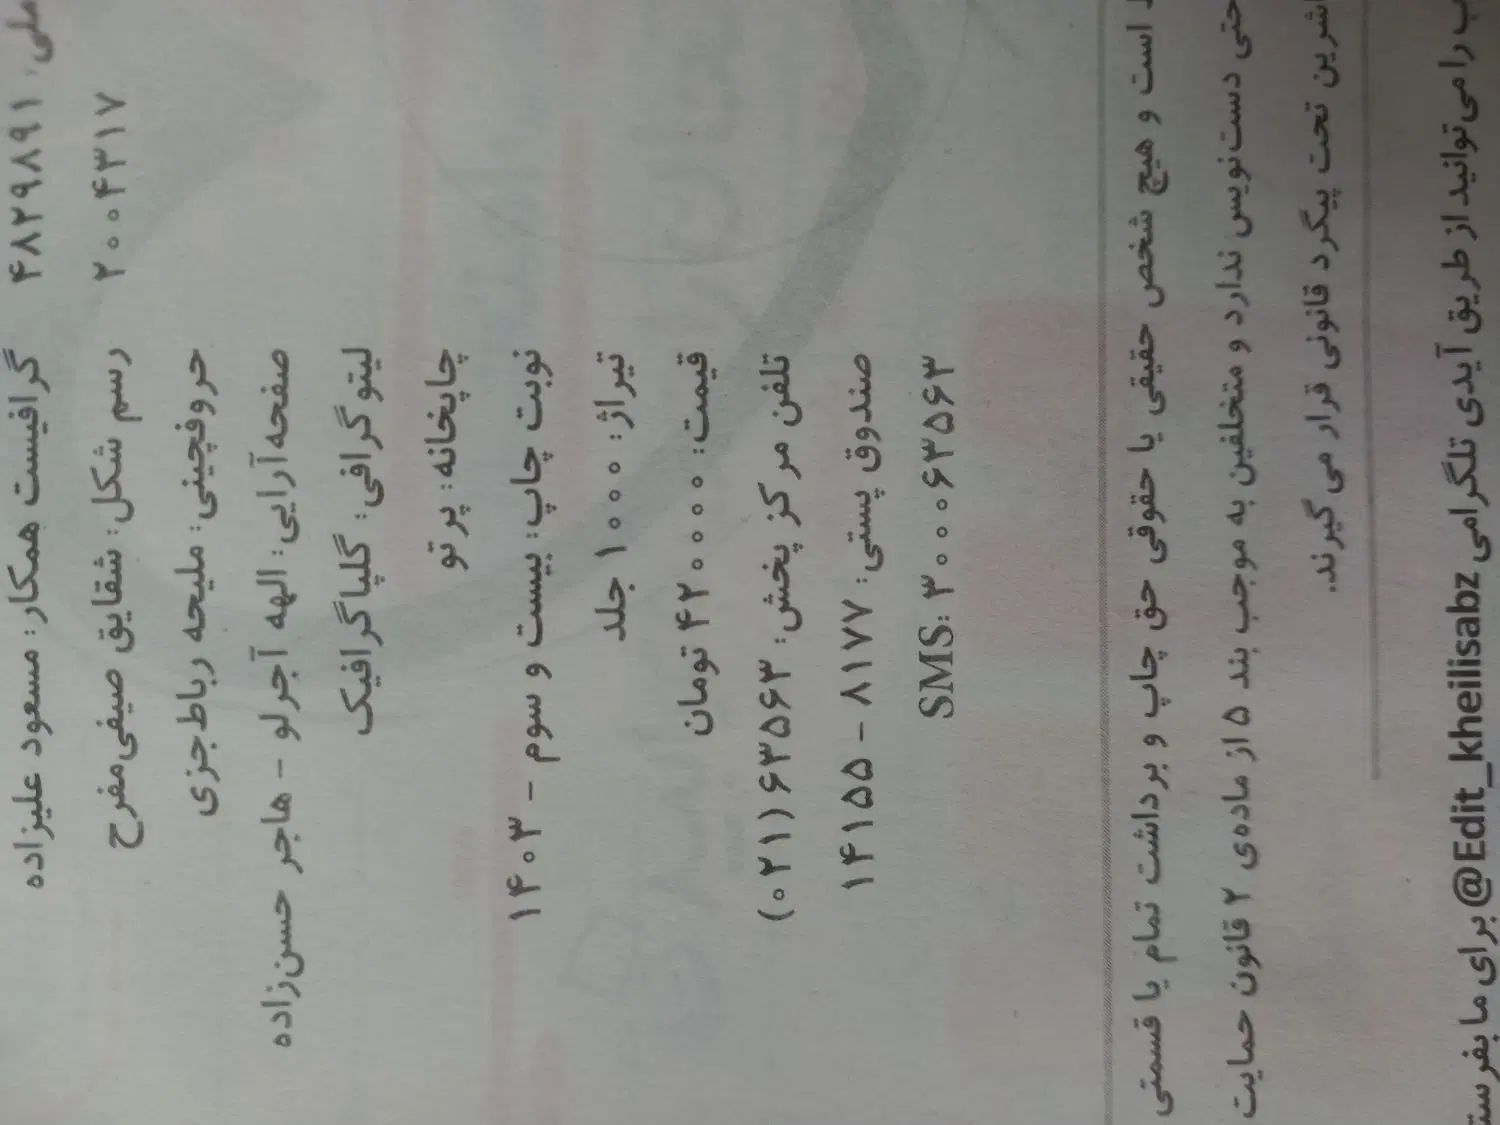 ملی: ۴۸۲۹۸۹۱
۲۰۰۴۳۱۷
گرافیست همکار: مسعود علیزاده
رسم شکل: شقایق صیفی‌مفرح
حروفچینی: ملیحه رباط‌جزی
صفحه‌آرایی: الهه آجرلو - هاجر حسن‌زاده
لیتوگرافی: گلپاگرافیک
چاپخانه: پرتو
نوبت چاپ: بیست و سوم - ۱۴۰۳
تیراژ: ۱۰۰۰ جلد
قیمت: ۴۲۰۰۰۰ تومان
تلفن مرکز پخش: ۶۳۵۶۳(۰۲۱)
صندوق پستی: ۸۱۷۷ - ۱۴۱۵۵
SMS: ۳۰۰۰۶۳۵۶۳
است و هیچ شخص حقیقی یا حقوقی حق چاپ و برداشت تمام یا قسمتی
حتی دست‌نویس ندارد و متخلفین به موجب بند ۵ از ماده‌ی ۲ قانون حمایت
تحت پیگرد قانونی قرار می‌گیرند.
را می‌توانید از طریق آیدی تلگرامی @Edit_kheilisabz برای ما